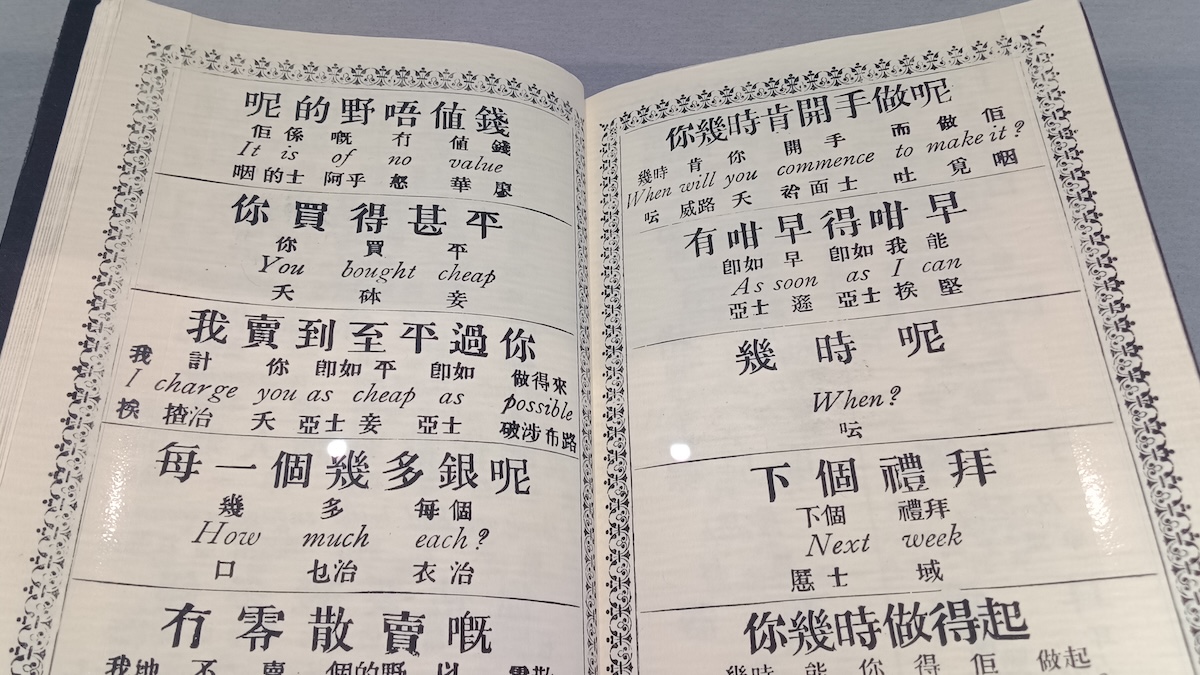 呢的野唔值錢
佢係 嘅 冇 值錢
It is of no value
咽的士 阿乎 怒 華廖
你買得甚平
你 買 平
You bought cheap
夭 砵 妾
我賣到至平過你
我 計 你 即如 平 即如 做得來
I charge you as cheap as possible
挨 揸治 夭 亞士 妾 亞士 破涉布路
每一個幾多銀呢
幾 多 每個
How much each?
口 乜治 衣治
冇零散賣嘅
我哋 不 賣 個的野 以 零散
你幾時肯開手做呢
幾時 肯 你 開手 而 做 佢
When will you commence to make it?
呍 威路 夭 衿面士 吐 覓 咽
有咁早得咁早
即如 早 即如 我 能
As soon as I can
亞士 遜 亞士 挨 堅
幾時呢
When?
呍
下個禮拜
下個 禮拜
Next week
慝士 域
你幾時做得起
幾時 能 你 得 佢 做起